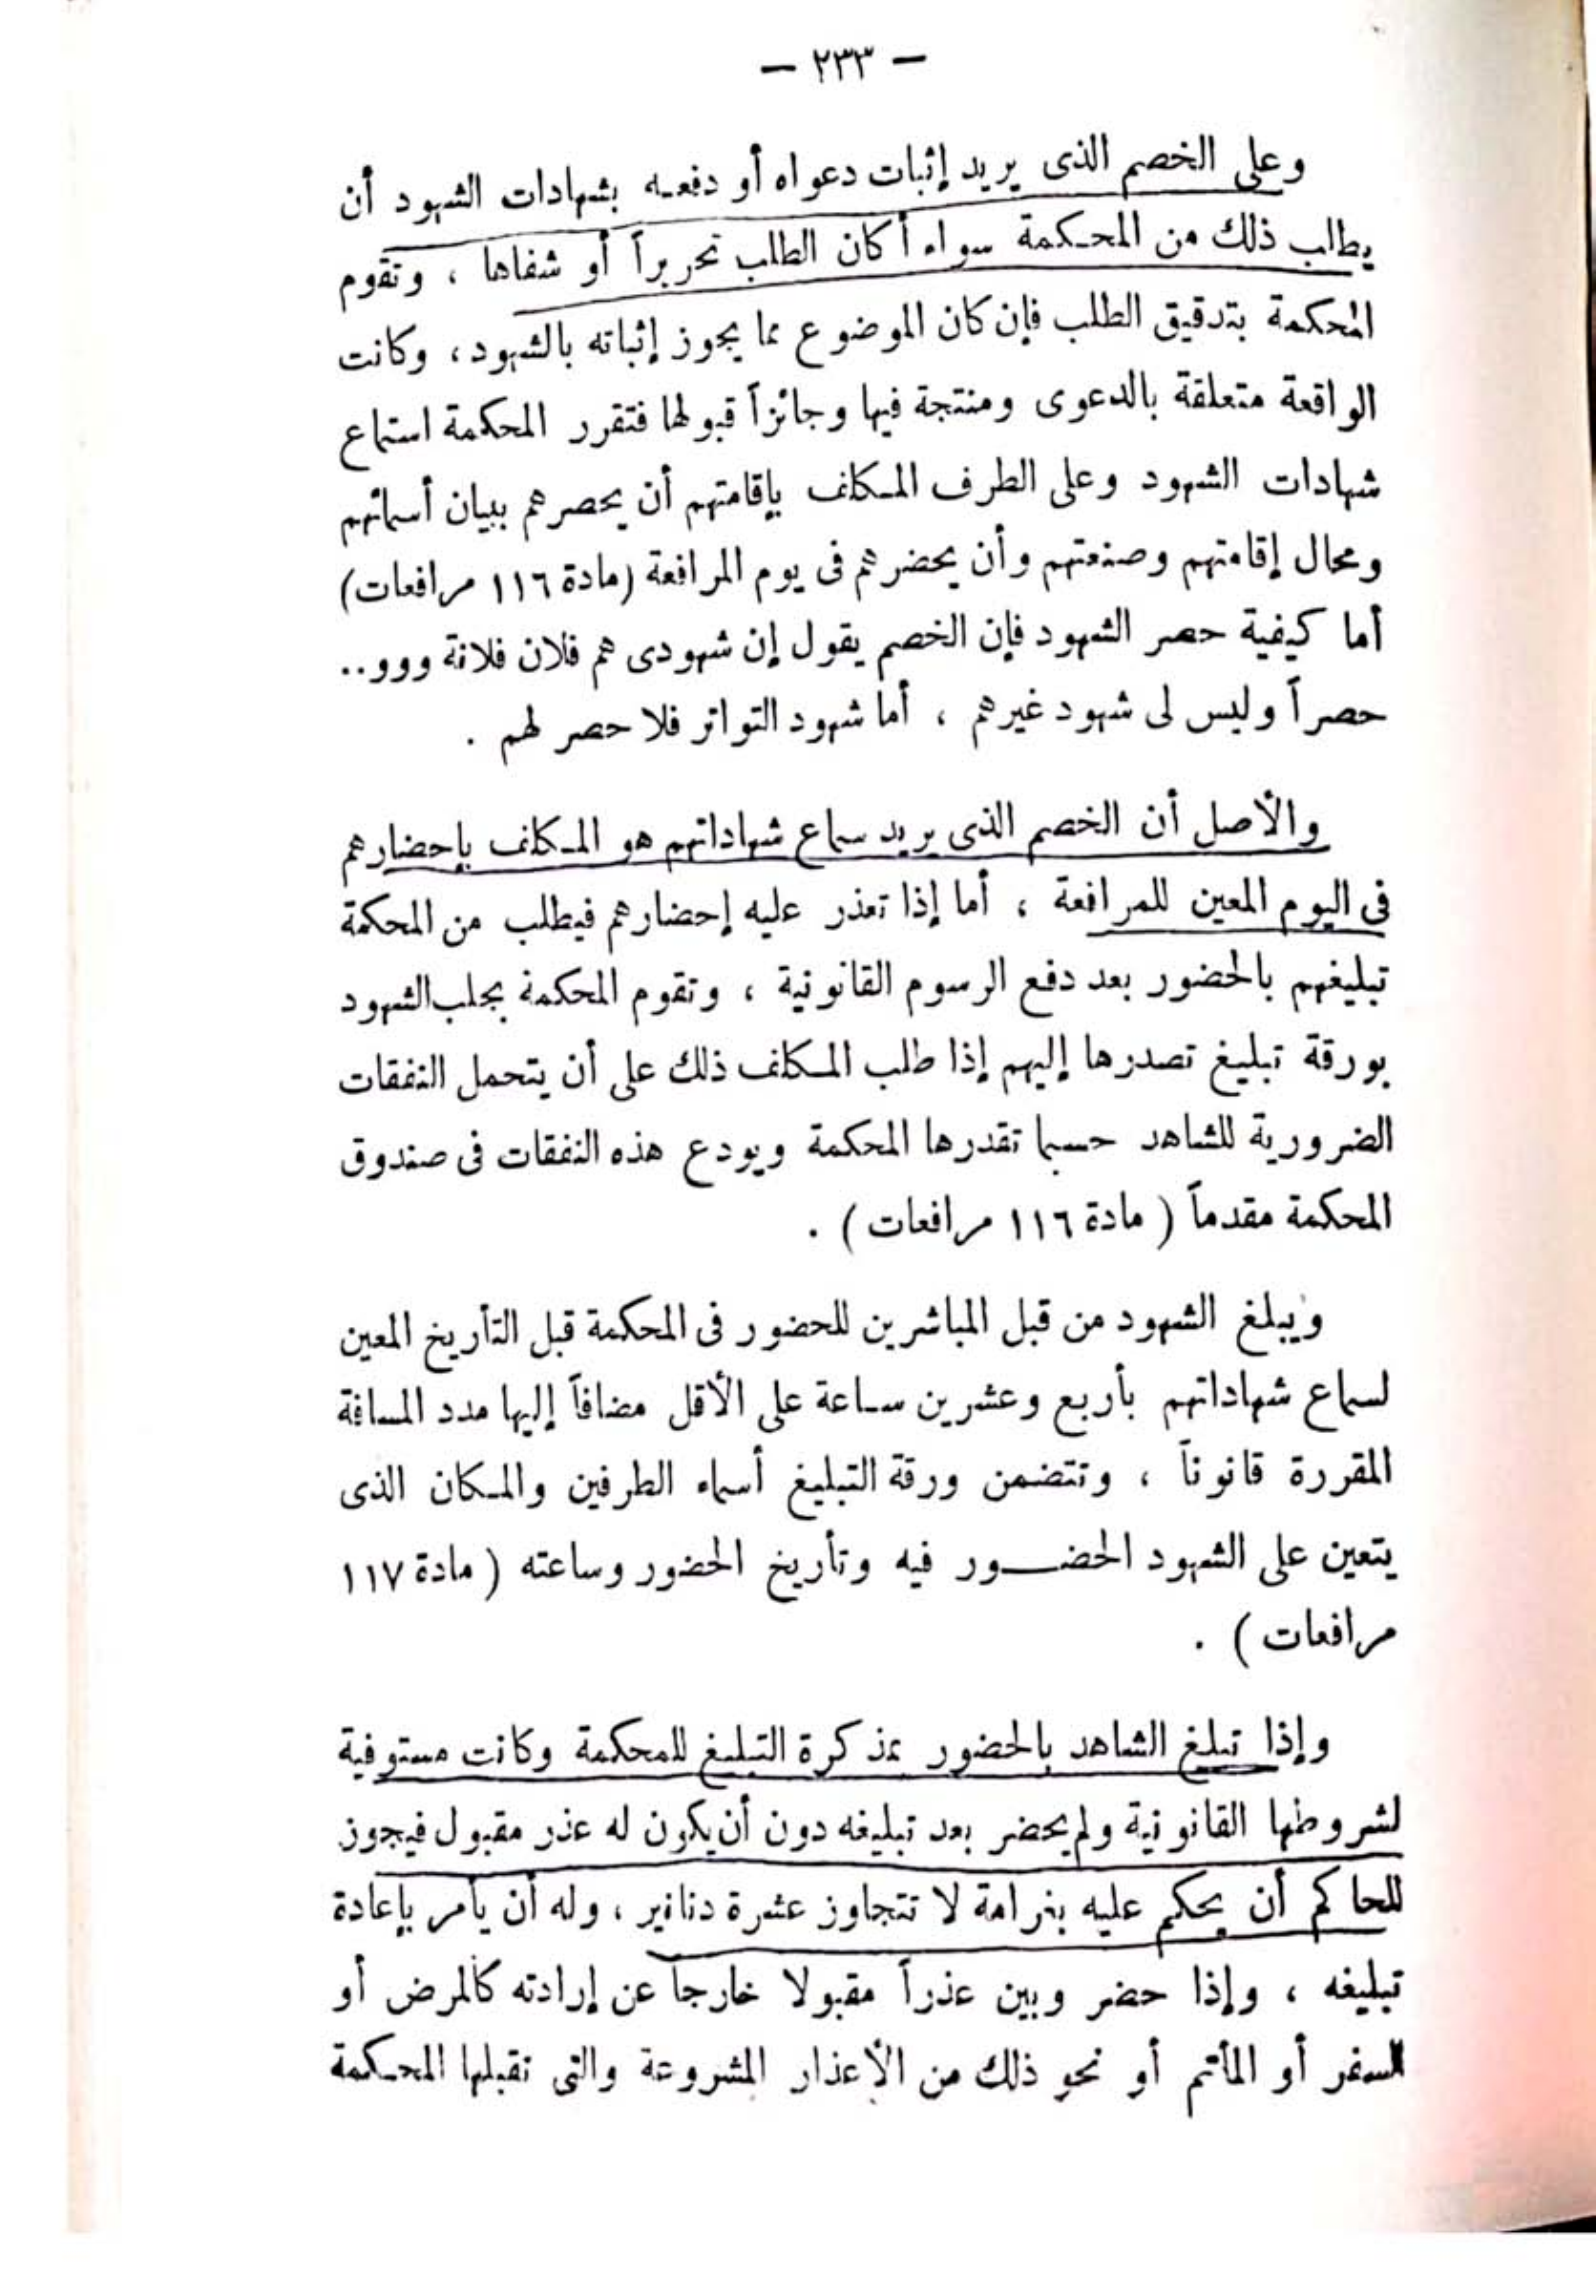 — ٢٣٣ —
وعلى الخصم الذى يريد إثبات دعواه أو دفعه بشهادات الشهود أن
يطالب ذلك من المحكمة سواء أكان الطلب تحريراً أو شفاها ، وتقوم
المحكمة بتدقيق الطلب فإن كان الموضوع مما يجوز إثباته بالشهود، وكانت
الواقعة متعلقة بالدعوى ومنتجة فيها وجائزاً قبولها فتقرر المحكمة استماع
شهادات الشهود وعلى الطرف المكلف بإقامتهم أن يحصرهم ببيان أسمائهم
ومحال إقامتهم وصنعتهم وأن يحضرهم فى يوم المرافعة (مادة ١١٦ مرافعات)
أما كيفية حصر الشهود فإن الخصم يقول إن شهودى هم فلان فلانة ووو..
حصراً وليس لى شهود غيرهم ، أما شهود التواتر فلا حصر لهم .
والأصل أن الخصم الذى يريد سماع شهاداتهم هو المكلف بإحضارهم
فى اليوم المعين للمرافعة ، أما إذا تعذر عليه إحضارهم فيطلب من المحكمة
تبليغهم بالحضور بعد دفع الرسوم القانونية ، وتقوم المحكمة بجلب الشهود
بورقة تبليغ تصدرها إليهم إذا طلب المكلف ذلك على أن يتحمل النفقات
الضرورية للشاهد حسبما تقدرها المحكمة ويودع هذه النفقات فى صندوق
المحكمة مقدماً ( مادة ١١٦ مرافعات ) .
ويبلغ الشهود من قبل المباشرين للحضور فى المحكمة قبل التأريخ المعين
لسماع شهاداتهم بأربع وعشرين ساعة على الأقل مضافاً إليها مدد المسافة
المقررة قانوناً ، وتتضمن ورقة التبليغ أسماء الطرفين والمكان الذى
يتعين على الشهود الحضـــور فيه وتأريخ الحضور وساعته ( مادة ١١٧
مرافعات ) .
وإذا تبلغ الشاهد بالحضور بمذكرة التبليغ للمحكمة وكانت مستوفية
لشروطها القانونية ولم يحضر بعد تبليغه دون أن يكون له عذر مقبول فيجوز
للحاكم أن يحكم عليه بغرامة لا تتجاوز عشرة دنانير ، وله أن يأمر بإعادة
تبليغه ، وإذا حضر وبين عذراً مقبولا خارجاً عن إرادته كالمرض أو
السفر أو المأتم أو نحو ذلك من الأعذار المشروعة والتى تقبلها المحكمة